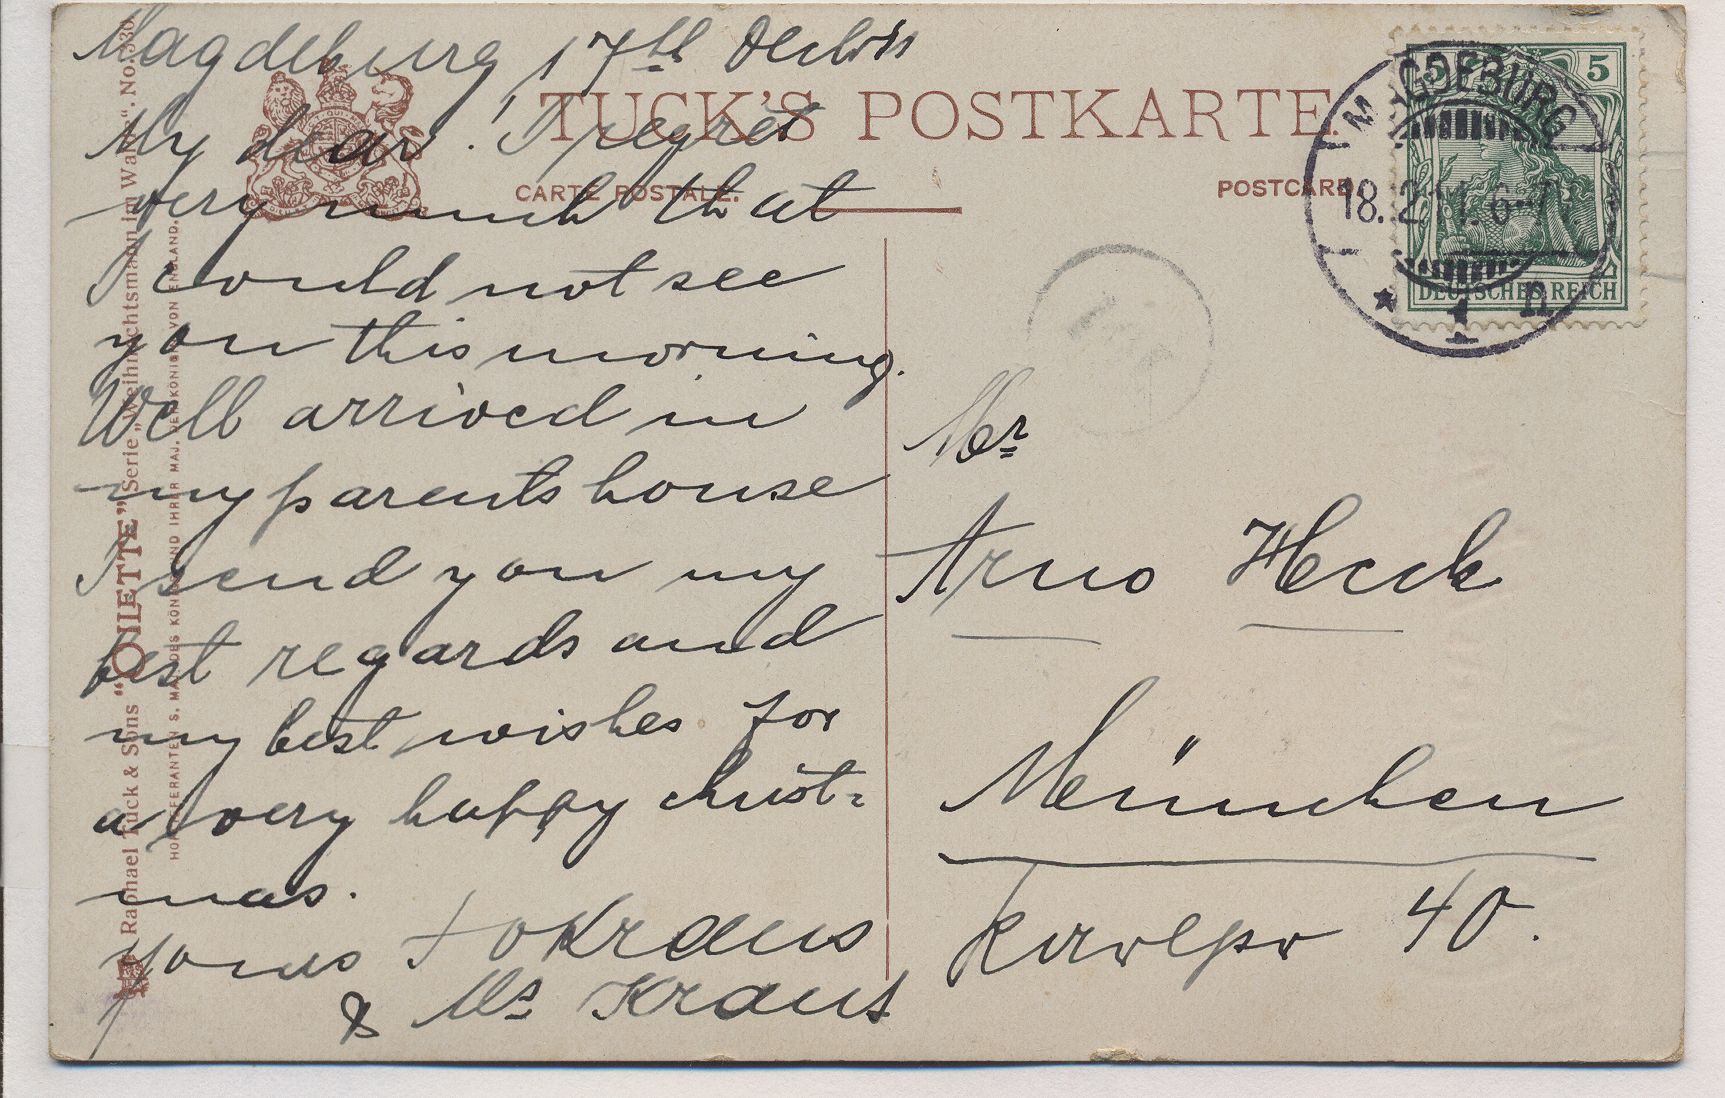 Magdeburg 17th
My dear! I regret
very much that
I could not see
you this morning.
Well arrived in
my parents house
I send you my
best regards and
my best wishes for
a very happy christ=
mas.
yours Kraus
& Ms Kraus
TUCK'S POSTKARTE.
CARTE POSTALE.
POSTCARD
Raphael Tuck & Sons "OILETTE" Serie „Weihnachtsmann im Wald“. No. 530
HOFLIEFERANTEN S. MAJ. DES KÖNIGS UND IHRER MAJ. DER KÖNIGIN VON ENGLAND.
5 5
DEUTSCHES REICH
MAGDEBURG
18.12.11. 6-7 N
* 1 n
Mr
Arno Heck
München
40.